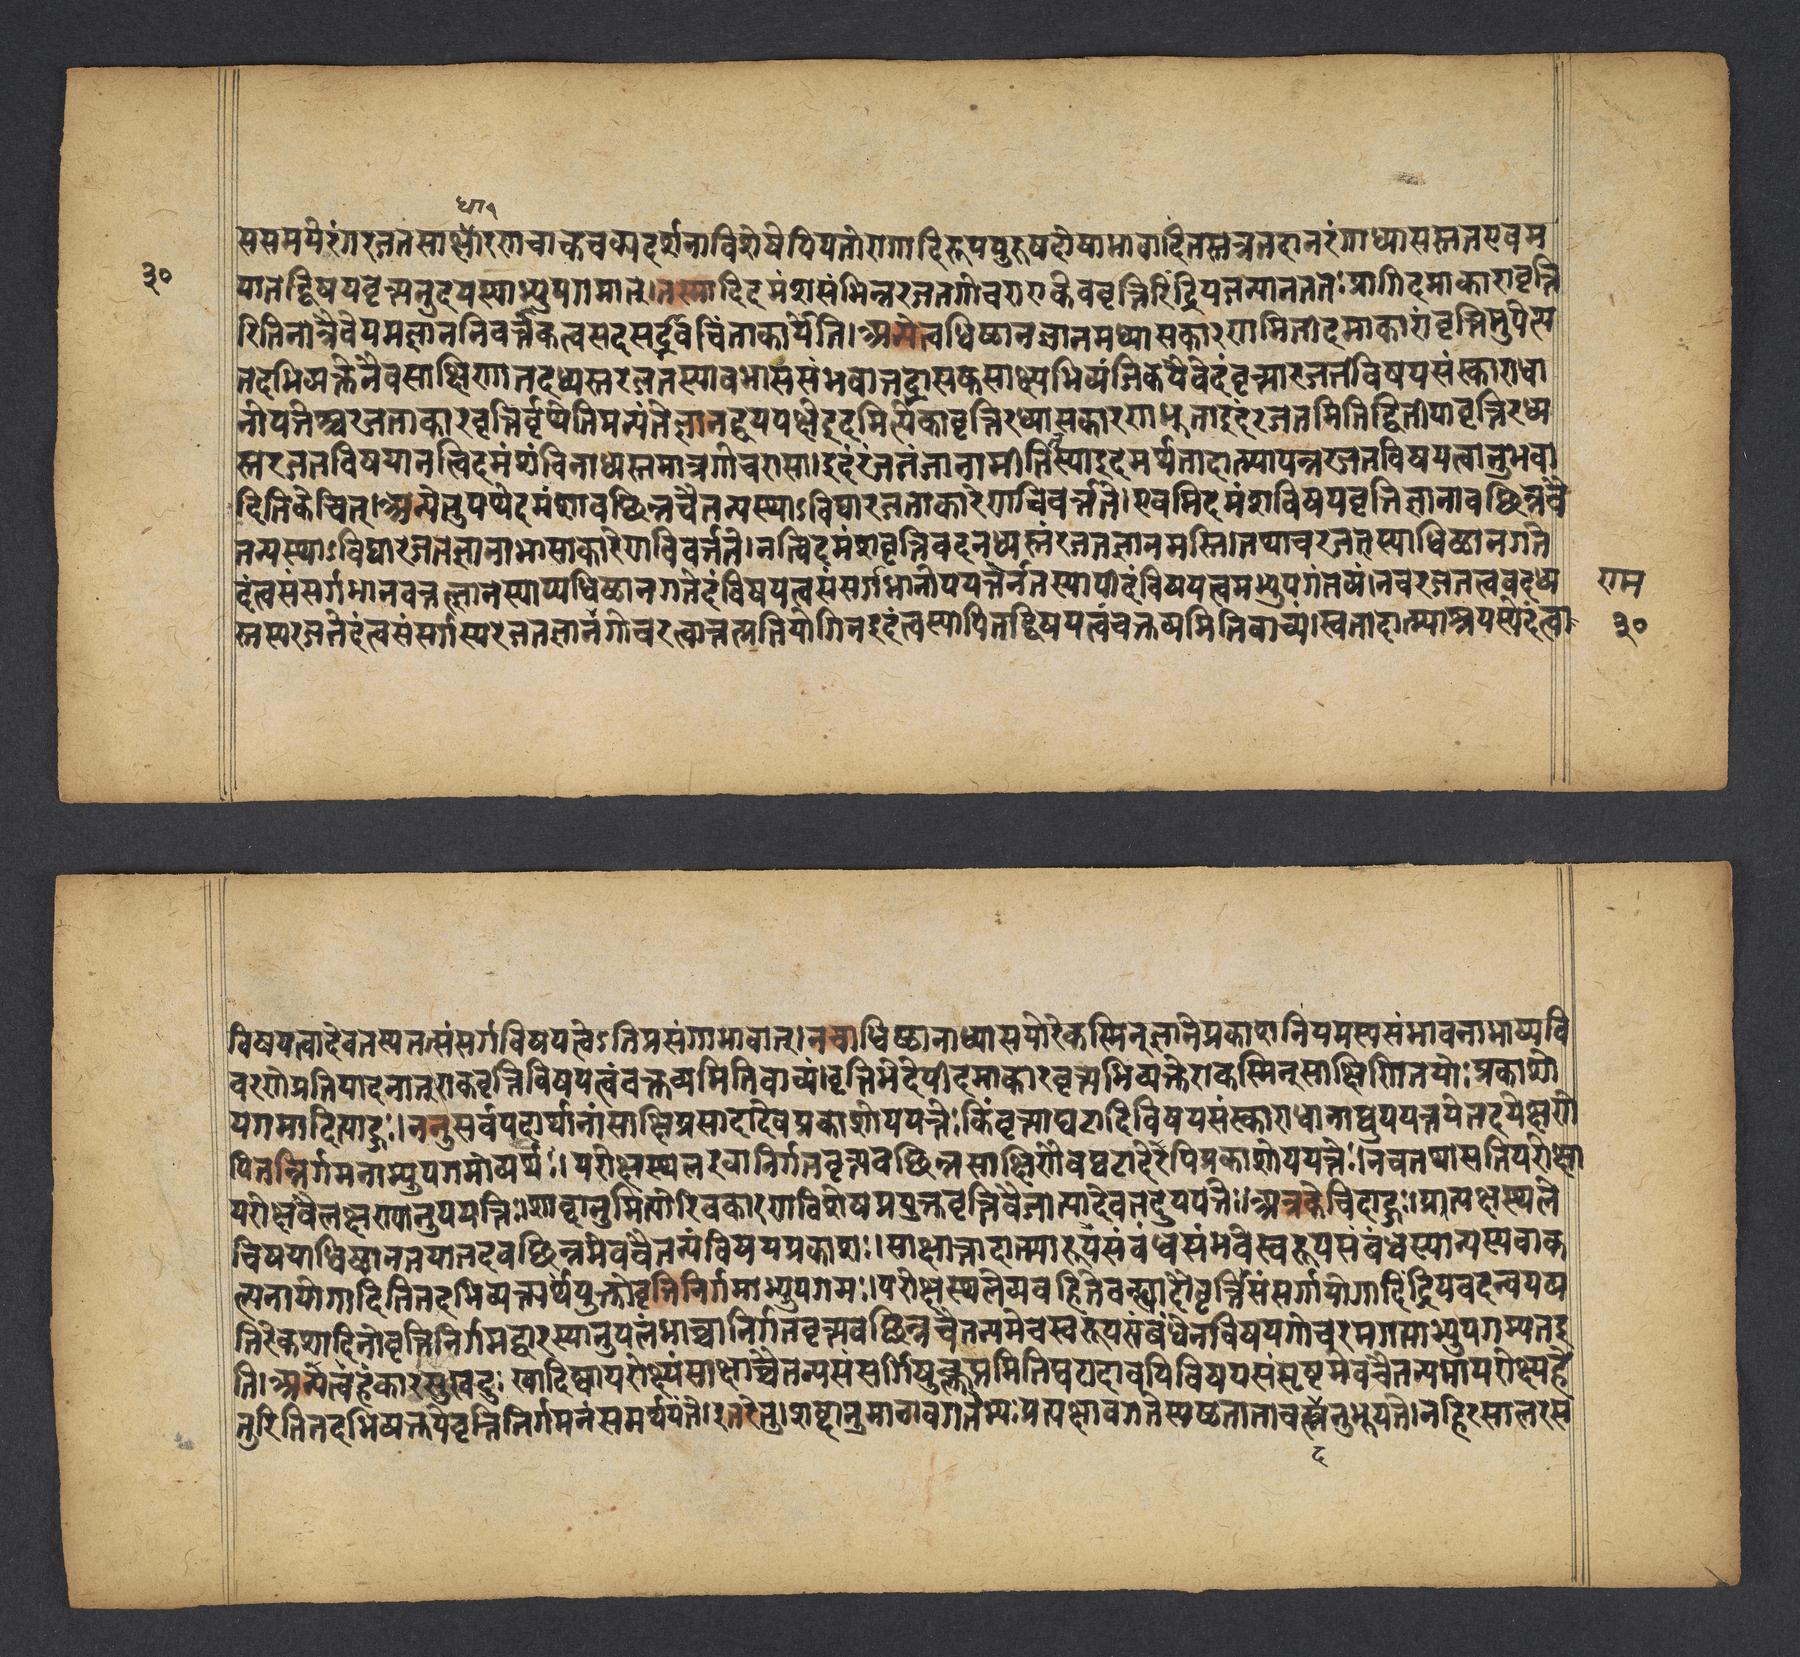 धा१
ससमये रंगरजतसाधारणचाकचक्यदर्शनाविशेषेपियतोरागादिरूपपुरुषदोषाभावादितस्तत्रतदानरंगाध्यासस्ततएवम
३०
यातद्विषयवृत्त्यनुदयस्याभ्युपगमात्।तस्मादिदमंशसंभिन्नरजतगोचराएकैववृत्तिरिंद्रियजन्यानततःप्रागिदमाकारावृत्ति
रितिनात्रैवेयमज्ञाननिवर्त्तकत्वसदसद्भावचिंताकार्येति।अन्येत्वधिष्ठानज्ञानमध्यासकारणमितीदमाकारांवृत्तिमुपेत्य
तदभिव्यक्तेनैवसाक्षिणातदध्यस्तरजतस्यावभाससंभवात्तद्भासकसाक्ष्यभिव्यंजिकयैवेदंवृत्त्यारजतविषयसंस्काराधा
नोपपत्तेश्चरजताकारवृत्तिर्वृथेतिमन्यंतेज्ञानद्वयपक्षेइदमित्येकावृत्तिरध्यासकारणभूताइदंरजतमितिद्वितीयावृत्तिरध्य
स्तरजतविषयानत्विदमंशंविनाध्यस्तमात्रगोचरासा।इदंरजतंजानामीतिस्याइदमर्थतादात्म्यापन्नरजतविषयत्वानुभवा
दितिकेचित्।अन्येतुयथेदमंशावच्छिन्नचैतन्यस्थाऽविद्यारजताकारेणविवर्त्तते।एवमिदमंशविषयवृत्तिज्ञानावच्छिन्नचै
तन्यस्थाऽविद्यारजतज्ञानाभासाकारेणविवर्त्तते।नत्विदमंशवृत्तिवदनध्यस्तंरजतज्ञानमस्ति।तथाचरजतस्याधिष्ठानगते
दंत्वसंसर्गभानवत्तज्ज्ञानस्याप्यधिष्ठानगतेदंविषयत्वसंसर्गभानोपपत्तेर्नतस्यापीदंविषयत्वमभ्युपगंतव्यं।नचरजतत्ववदध्य
राम
स्तस्यरजतेदंत्वसंसर्गस्यरजतज्ञानगोचरत्वात्तत्प्रतियोगिनइदंत्वस्यापितद्विषयत्वंवक्तव्यमितिवाच्यं।स्वतादात्म्याश्रयस्येदंत्वा
३०
विषयत्वादेवतस्यतत्संसर्गविषयत्वेऽतिप्रसंगाभावात्।नचाधिष्ठानाध्यासयोरेकस्मिन्ज्ञानेप्रकाशनियमस्यसंभावनाभाष्यवि
वरणेप्रतिपादनात्तुएकवृत्तिविषयत्वंवक्तव्यमितिवाच्यं।वृत्तिभेदेपीदमाकारवृत्त्यभिव्यक्तेएकस्मिन्साक्षिणितयोःप्रकाशो
पगमादित्याहुः।ननुसर्वपदार्थानांसाक्षिप्रसादादेवप्रकाशोपपत्तेःकिंवृत्त्याघटादिविषयसंस्काराधानाद्युपपत्तयेतदपेक्षणे
पितन्निर्गमनाभ्युपगमोव्यर्थः।परोक्षस्थलइवानिर्गतवृत्त्यवच्छिन्नसाक्षिणैवघटादेरपिप्रकाशोपपत्तेः।नचतथासतिपरोक्षा
परोक्षवैलक्षण्यानुपपत्तिः।शाब्दानुमित्योरिवकारणविशेषप्रयुक्तवृत्तिवैजात्यादेवतदुपपत्तेः।अत्रकेचिदाहुः।प्रत्यक्षस्थले
विषयाधिष्ठानतयातदवच्छिन्नमेवचैतन्यंविषयप्रकाशः।साक्षात्तादात्म्यरूपसंबंधसंभवेस्वरूपसंबंधस्यान्यस्यवाक
ल्पनायोगादितितदभिव्यक्त्यर्थयुक्तोवृत्तिनिर्गमाभ्युपगमः।परोक्षस्थलेव्यवहितेवह्न्यादौवृत्तिसंसर्गायोगादिंद्रियवदन्वयव्य
तिरेकशालिनोवृत्तिनिर्गमद्वारस्यानुपलंभाच्चानिर्गतवृत्त्यवच्छिन्नचैतन्यमेवस्वरूपसंबंधेनविषयगोचरमगत्याभ्युपगम्यतइ
ति।अन्येत्वहंकारसुखदुःखादिष्वापरोक्ष्यंसाक्षाच्चैतन्यसंसर्गिषुक्लृप्तमितिघटादावपिविषयसंसृष्टमेवचैतन्यमापरोक्ष्यहे
तुरितितदभिव्यक्तयेवृत्तिनिर्गमनंसमर्थयंते।इतरेतु।शब्दानुमानावगतेभ्यःप्रत्यक्षावगतेस्पष्टतातावदनुभूयते।नहिरसालरस
द